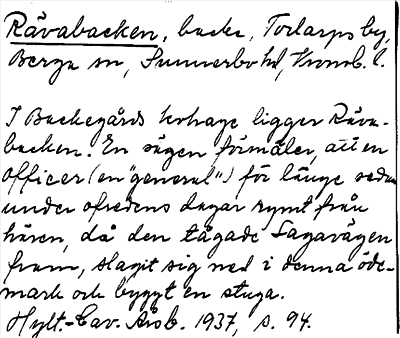 Rävabacken, backe, Torlarps by,
Berga sn, Sunnerbo hd, Kronob. l.
I Backegårds kohage ligger Räva-
backen. En sägen förmäler, att en
officer (en "general") för länge sedan
under ofredens dagar rymt från
hären, då den tågade Lagavägen
fram, slagit sig ned i denna öde-
mark och byggt en stuga.
Hylt.-Cav. Årsb. 1937, s. 94.